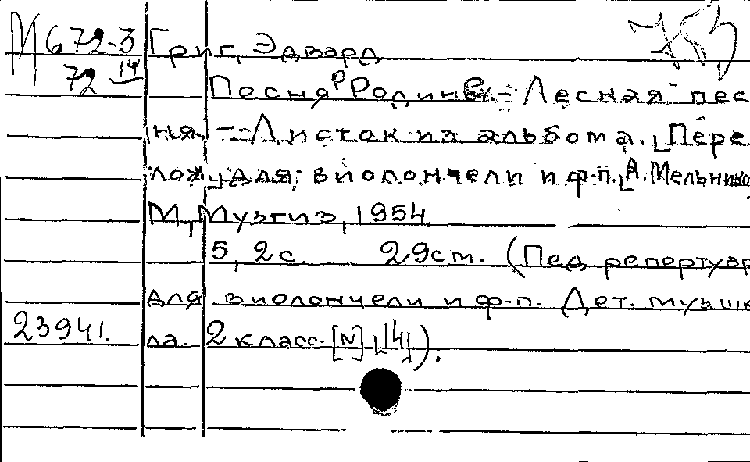 М 672-3 Григ, Эдвард
72 14
Песня о Родине. - Лесная пес
ня. - Листок из альбома. [Пере
лож.] для виолончели и ф-п. [А. Мельник
М., Музгиз, 1954
5, 2 с. 29 см. (Пед. репертуар
для виолончели и ф-п. Дет. муз. шк
23941. ла. 2 класс. [N] [14]).